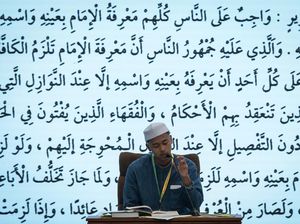 وَاجِبٌ عَلَى النَّاسِ كُلِّهِمْ مَعْرِفَةُ الْإِمَامِ بِعَيْنِهِ وَاسْمِهِ
. وَالَّذِي عَلَيْهِ جُمْهُورُ النَّاسِ أَنَّ مَعْرِفَةَ الْإِمَامِ تَلْزَمُ الْكَافَّةَ
عَلَى كُلِّ أَحَدٍ أَنْ يَعْرِفَهُ بِعَيْنِهِ وَاسْمِهِ إِلَّا عِنْدَ النَّوَازِلِ الَّتِي
تَنْعَقِدُ بِهِمُ الْأَحْكَامُ ، وَالْفُقَهَاءِ الَّذِينَ يُفْتُونَ فِي
دُونَ التَّفْصِيلِ إِلَّا عِنْدَ الْمُحْوِجَةِ إِلَيْهِمْ
بِعَيْنِهِ وَاسْمِهِ وَلَمَا جَازَ تَخَلُّفُ
عَائِدًا ، وَإِذَا لَزِمَتْ